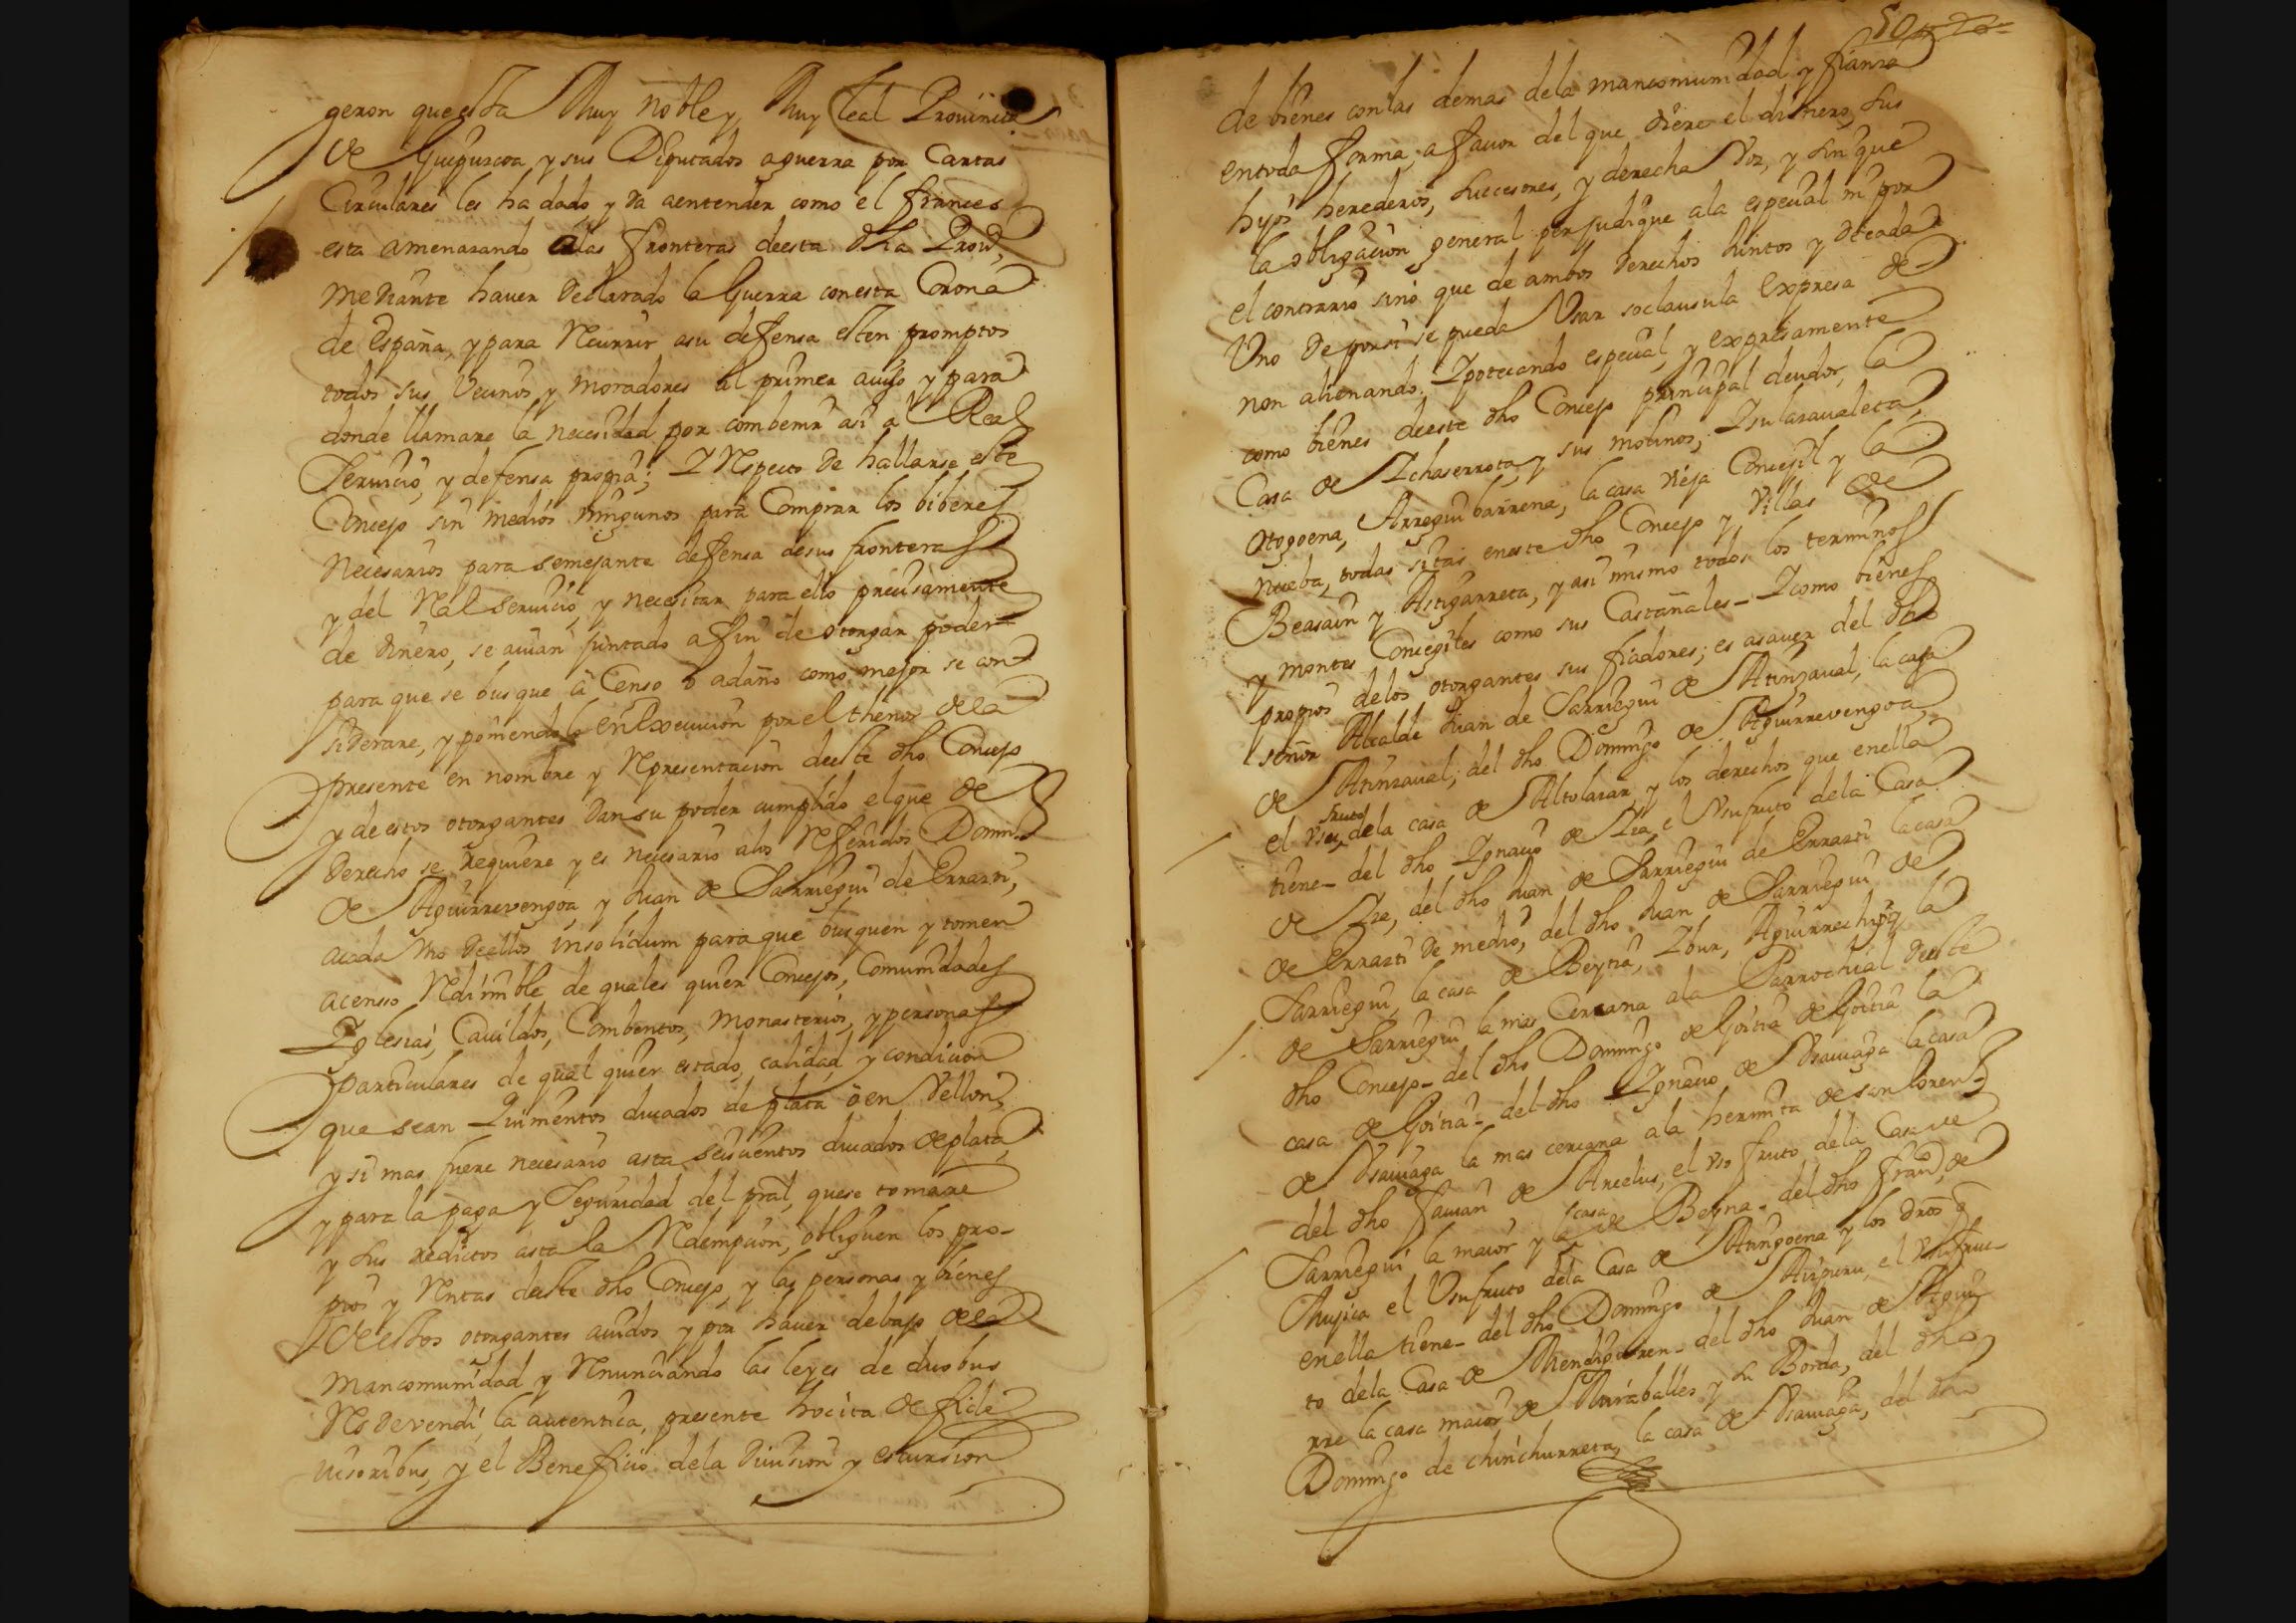 geron que esta Muy noble y Muy leal Provincia
de Guipuzcoa y sus Diputados aguerra por Cartas
Circulares les ha dado y da aentender como el frances
esta amenazando alas fronteras deesta dha Prov.ª
mediante haver declarado la Guerra conesta Corona
de España, y para Recurrir asu deffensa esten promptos
todos sus Vecinos y moradores al primer auiso y para
donde llamare la necesidad por combenir asi a Real
Seruicio, y defensa propia; Y Respecto de hallarse este
Concejo sin medios ningunos para Comprar los biberes
necesarios para semejante deffensa desus fronteras
y del Rl seruicio, y necesitar para ello precisamente
de dinero, se auian juntado afin de otorgar poder
para que se busque à Censo ò adaño como mejor se con
siderare, y poniendolo en execucion por el thenor dela
presente en nombre y Representacion deeste dho Concejo
y de estos otorgantes dan su poder cumplido el que de
derecho se requiere y es necesario alos Referidos Domin.º
de Aguirrevengoa y Juan de Sarriegui de Errazti,
acada vno deellos insolidum para que busquen y tomen
acenso Redimible de quales quier Concejos, Comunidades
Yglesias, Cauildos, Combentos, Monasterios, y personas
particulares de qual quier estado, calidad y condicion
que sean Quinientos ducados de plata ò en Vellon,
y si mas fuere necesario asta seiscientos ducados de plata,
y para la paga y Seguridad del pral, que se tomare
y sus reditos asta la Redempcion, obliguen los pro-
pios y Rentas deeste dho Concejo, y las personas y bienes
de estos otorgantes auidos y por hauer debajo dela
mancomunidad y Renunciando las leyes de duobus
Res devendi, la autentica, presente hocita de fide
iusoribus, y el Beneficio dela diuision y escursion
50
de bienes conlas demas dela mancomunidad y fianza
entoda forma, a fauor del que diere el dinero, sus
hijos herederos, Successores, y derecha Voz, y sin que
la obligacion general perjudique ala especial ni por
el contrario sino que de ambos derechos juntos y decada
Uno de porsi se pueda Usar soclausula Expresa de
non alienando; Ypotecando especial, y expresamente
como bienes deeste dho Concejo principal deudor, la
Casa de Ychaserrota y sus molinos; Ysulasaualeta,
Otogoena, Arreguibarrena, la casa vieja Concegil y la
nueba, todas sitas eneste dho Concejo y Villas de
Beasain y Astigarreta, y asi mismo todos los terminos
y montes Concegiles como sus Castañales - Y como bienes
propios delos otorgantes sus fiadores; es asauer, del dho
señor Alcalde Juan de Sarriegui de Atinzaual, la casa
de Atinzaual; del dho Domingo de Aguirrevengoa,
el vsu fruto dela casa de Altolazar, y los derechos que enella
tiene - del dho Ygnacio de Yza, el Vsufruto dela Casa
de Yza, del dho Juan de Sarriegui de Errazti la casa
de Errazti de medio, del dho Juan de Sarriegui de
Sarriegui, la casa de Beytia, Ybur, Aguirrechipia, la
de Sarriegui la mas Cercana ala Parrochial deeste
dho Concejo - del dho Domingo de Goitia de Goitia la
casa de Goitia - del dho Ygnacio de Vsauiaga la casa
de Vsauiaga la mas cercana ala hermita de san Loren-
del dho Fauian de Arcelus, el vso fruto dela Casa de
Sarriegui la maior y la casa de Beyna - del dho fran.co de
Mujica el Vsufruto dela Casa de Aringoena y los dros q̃
enella tiene - del dho Domingo de Aizpuru, el Vsufru-
to dela Casa de Mendiguren - del dho Juan de Aguir
rre la casa maior de Muiraballes y la Borda, del dho
Domingo de chinchurreta, la casa de Vsauiaga, del dho